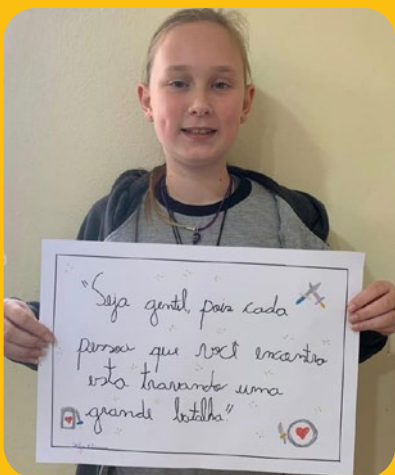 "Seja gentil, pois cada
pessoa que você encontra
esta travando uma
grande batalha"